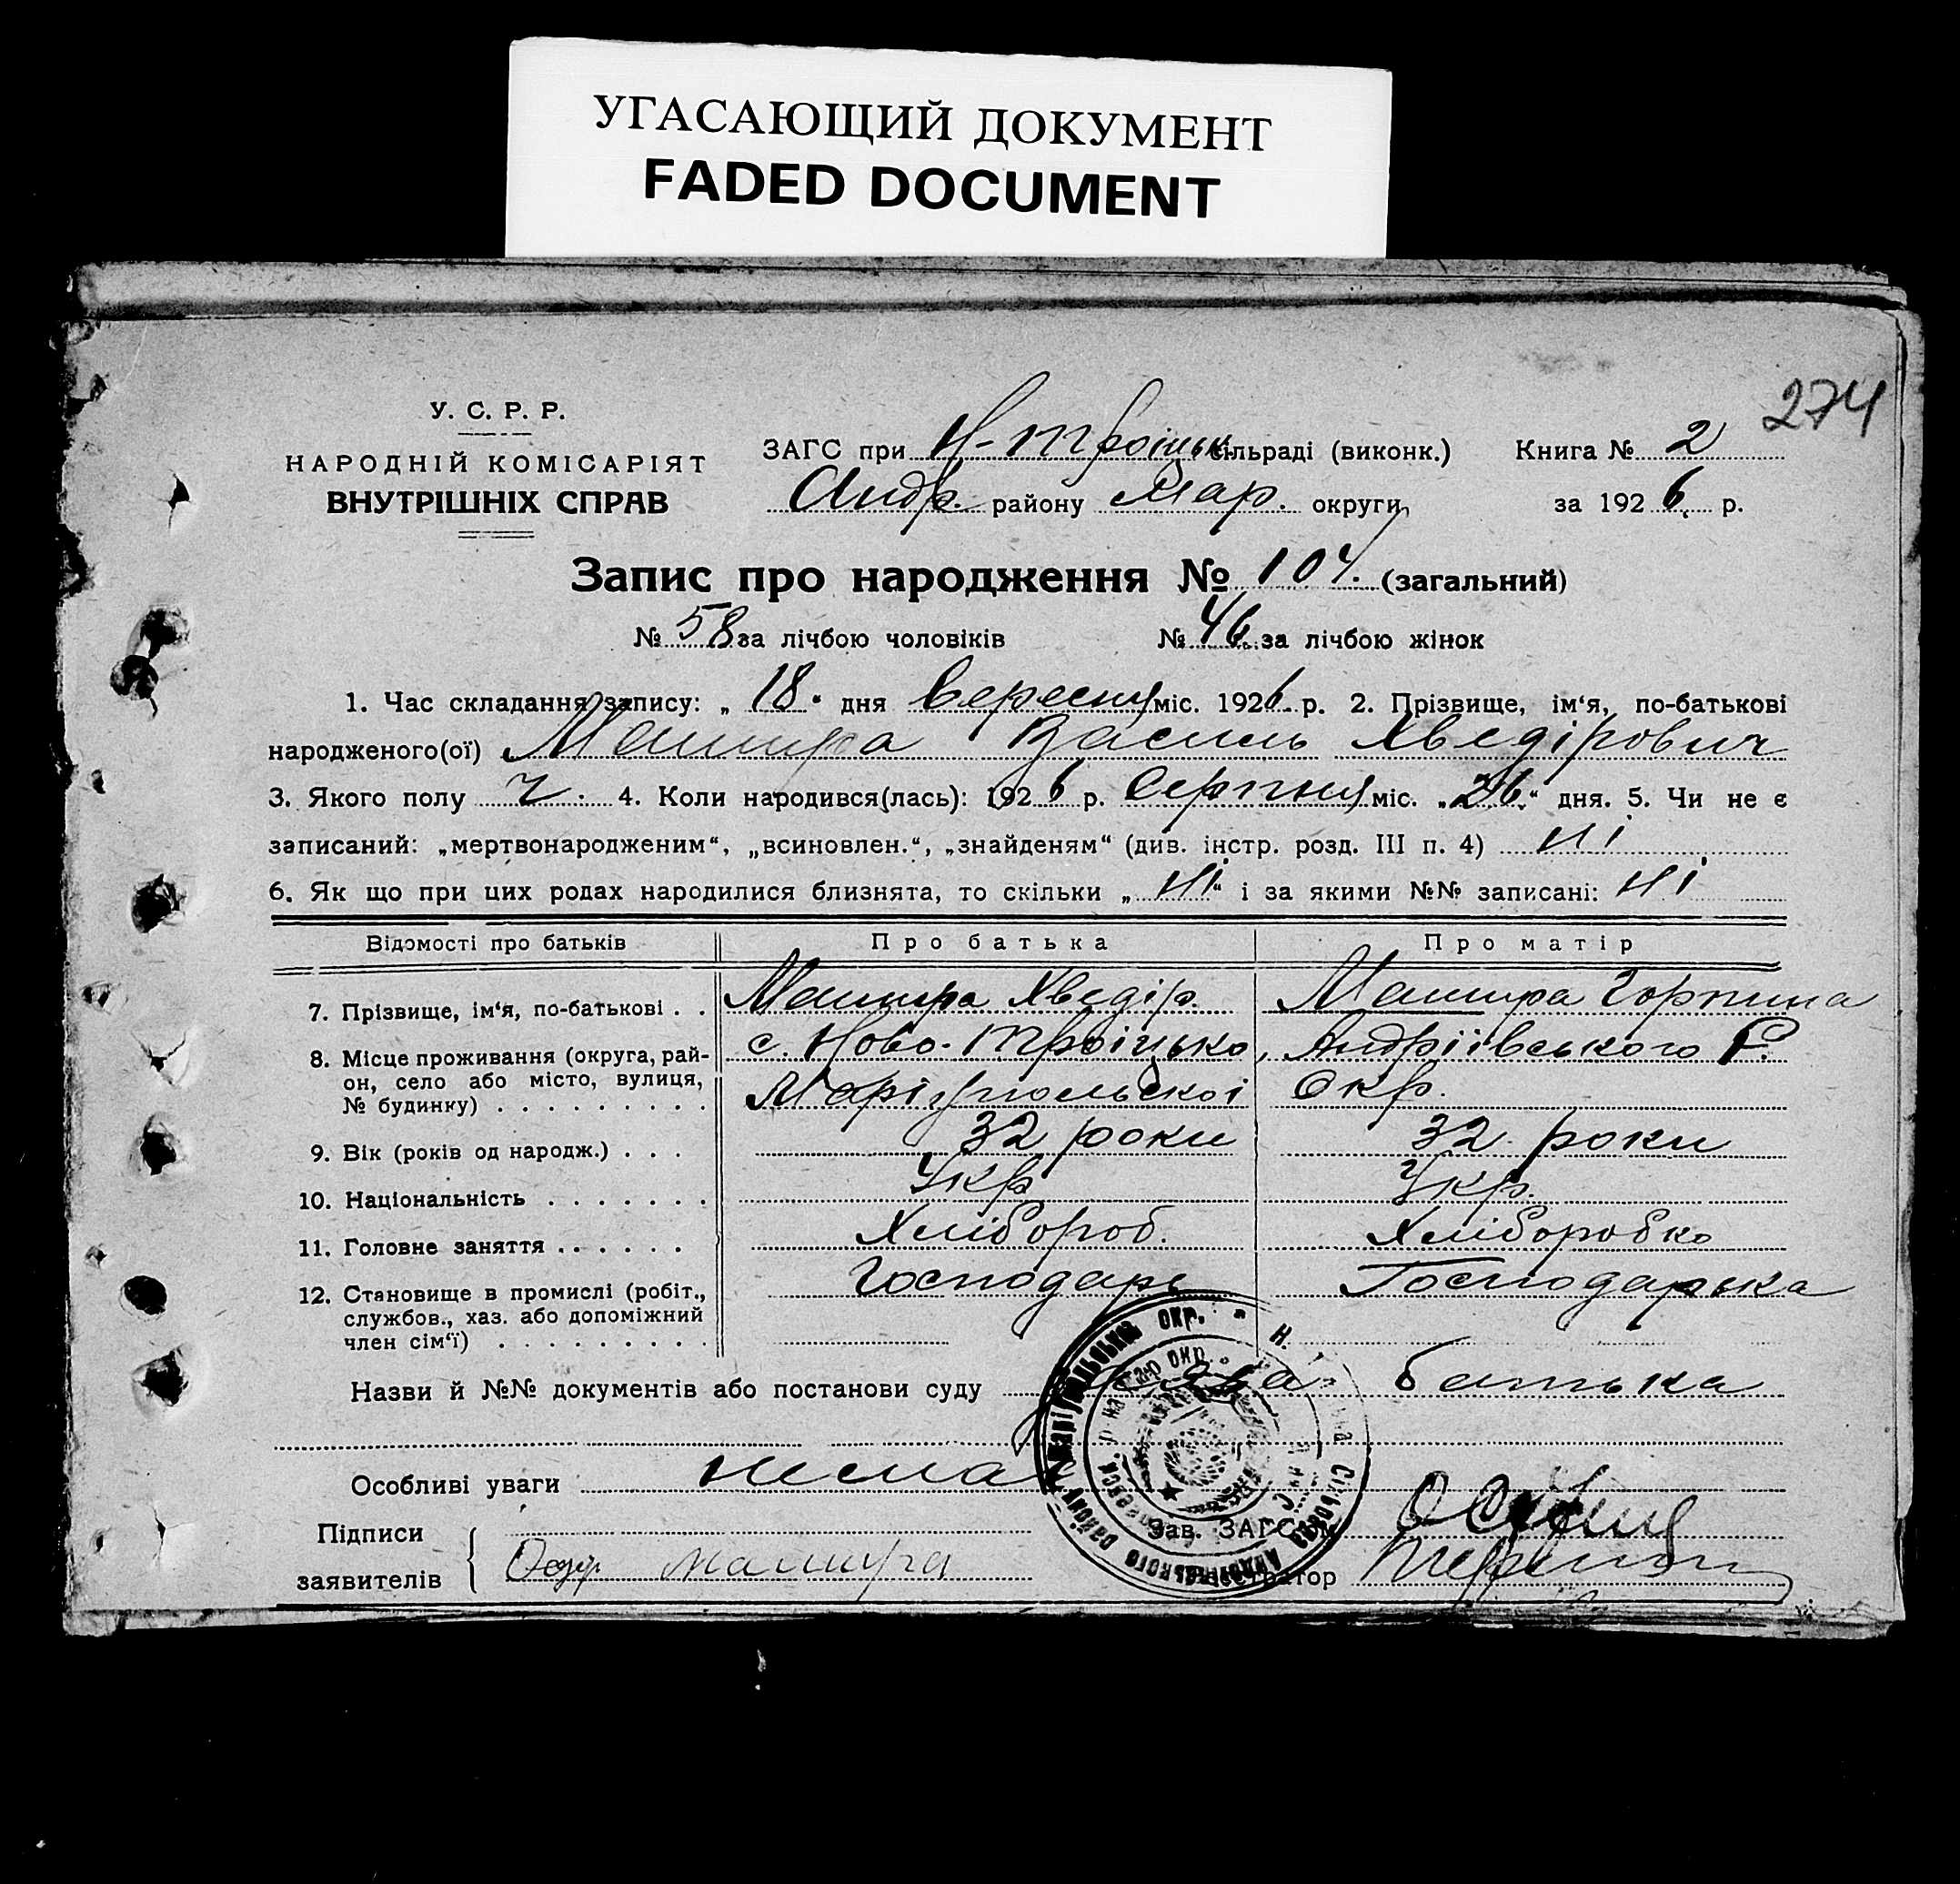 УГАСАЮЩИЙ ДОКУМЕНТ
FADED DOCUMENT
274
У. С. Р. Р.
НАРОДНІЙ КОМІСАРІЯТ
ВНУТРІШНІХ СПРАВ
ЗАГС при Н-Троіцьк. сільраді (виконк.) Книга № 2
Андр. району Мар. округи за 1926 р.
Запис про народження № 104. (загальний)
№ 58 за лічбою чоловіків № 46 за лічбою жінок
1. Час складання запису: „18“ дня вересня міс. 1926 р. 2. Прізвище, ім‘я, по-батькові
народженого(ої) Машира Василь Хведірович
3. Якого полу ч. 4. Коли народився(лась): 1926 р. Серпня міс. „26“ дня. 5. Чи не є
записаний: „мертвонародженим“, „всиновлен.“, „знайденям“ (див. інстр. розд. III п. 4) ні
6. Як що при цих родах народилися близнята, то скільки „ні“ і за якими №№ записані: ні
Відомості про батьків Про батька Про матір
7. Прізвище, ім‘я, по-батькові . . Машира Хведір. Машира Горпина
8. Місце проживання (округа, рай- с. Ново-Троіцько, Андріівського Р.
он, село або місто, вулиця,
№ будинку) . . . . . . . . . Маріупольскоі Окр.
9. Вік (років од народж.) . . . 32 роки 32 роки
10. Національність . . . . . . . Укр Укр.
11. Головне заняття . . . . . . Хлібороб. Хліборобка
12. Становище в промислі (робіт., Господарь Господарька
службов., хаз. або допоміжний
член сім‘ї) . . . . . . . . .
Назви й №№ документів або постанови суду батька
Особливі уваги нема
Підписи
заявителів Машира
Зав. ЗАГС‘ом
Реєстратор